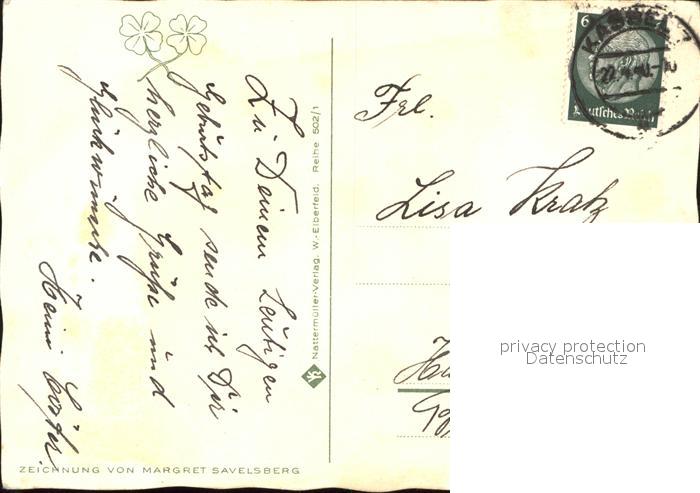 Zu Deinem heutigen
Geburtstag sende ich Dir
herzliche Grüße und
Glückwünsche.
Heini
Nattermüller-Verlag, W.-Elberfeld. Reihe 502/1
ZEICHNUNG VON MARGRET SAVELSBERG
6
Deutsches Reich
KASSEL 7
Frl.
Lisa Kratz
privacy protection
Datenschutz